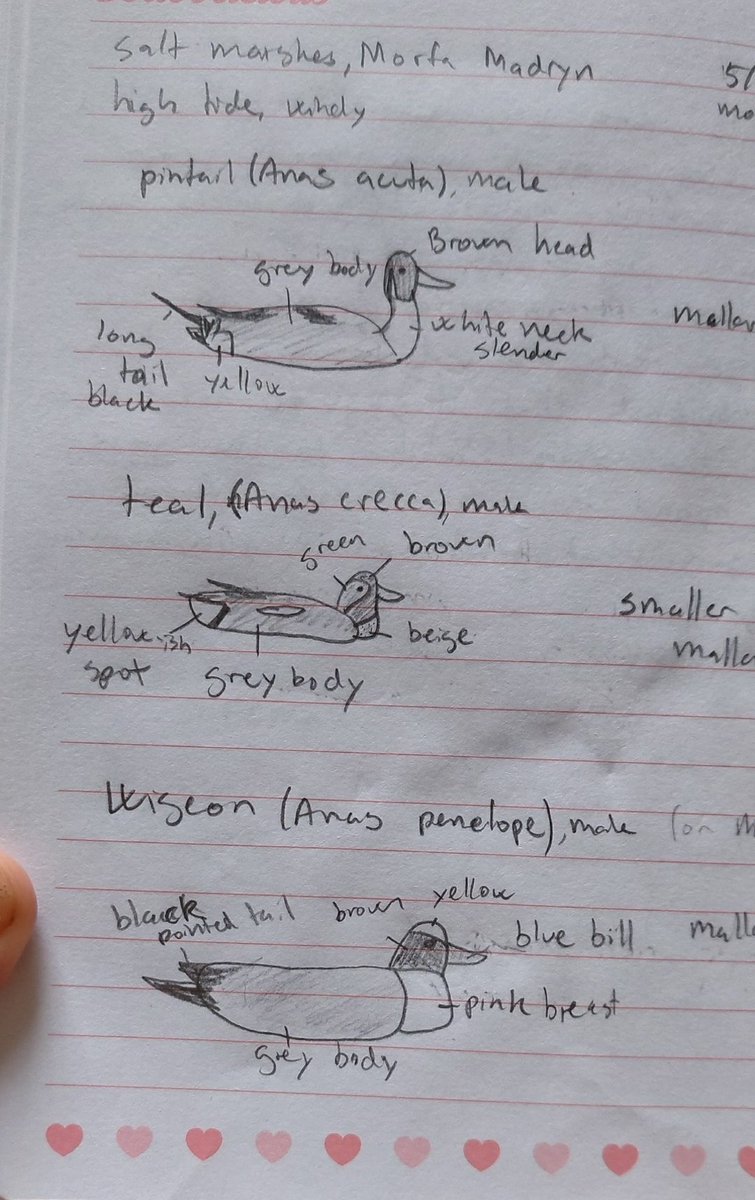 salt marshes, Morfa Madryn 5/
high tide, windy mo
pintail (Anas acuta), male
Brown head
grey body
white neck
slender
mallar
long
tail
black
yellow
teal, (Anas crecca), male
green brown
smaller
yellow-ish
spot
beige
malla
grey body
Wigeon (Anas penelope), male (on m
black
pointed tail
brown yellow
blue bill
malla
pink breast
grey body